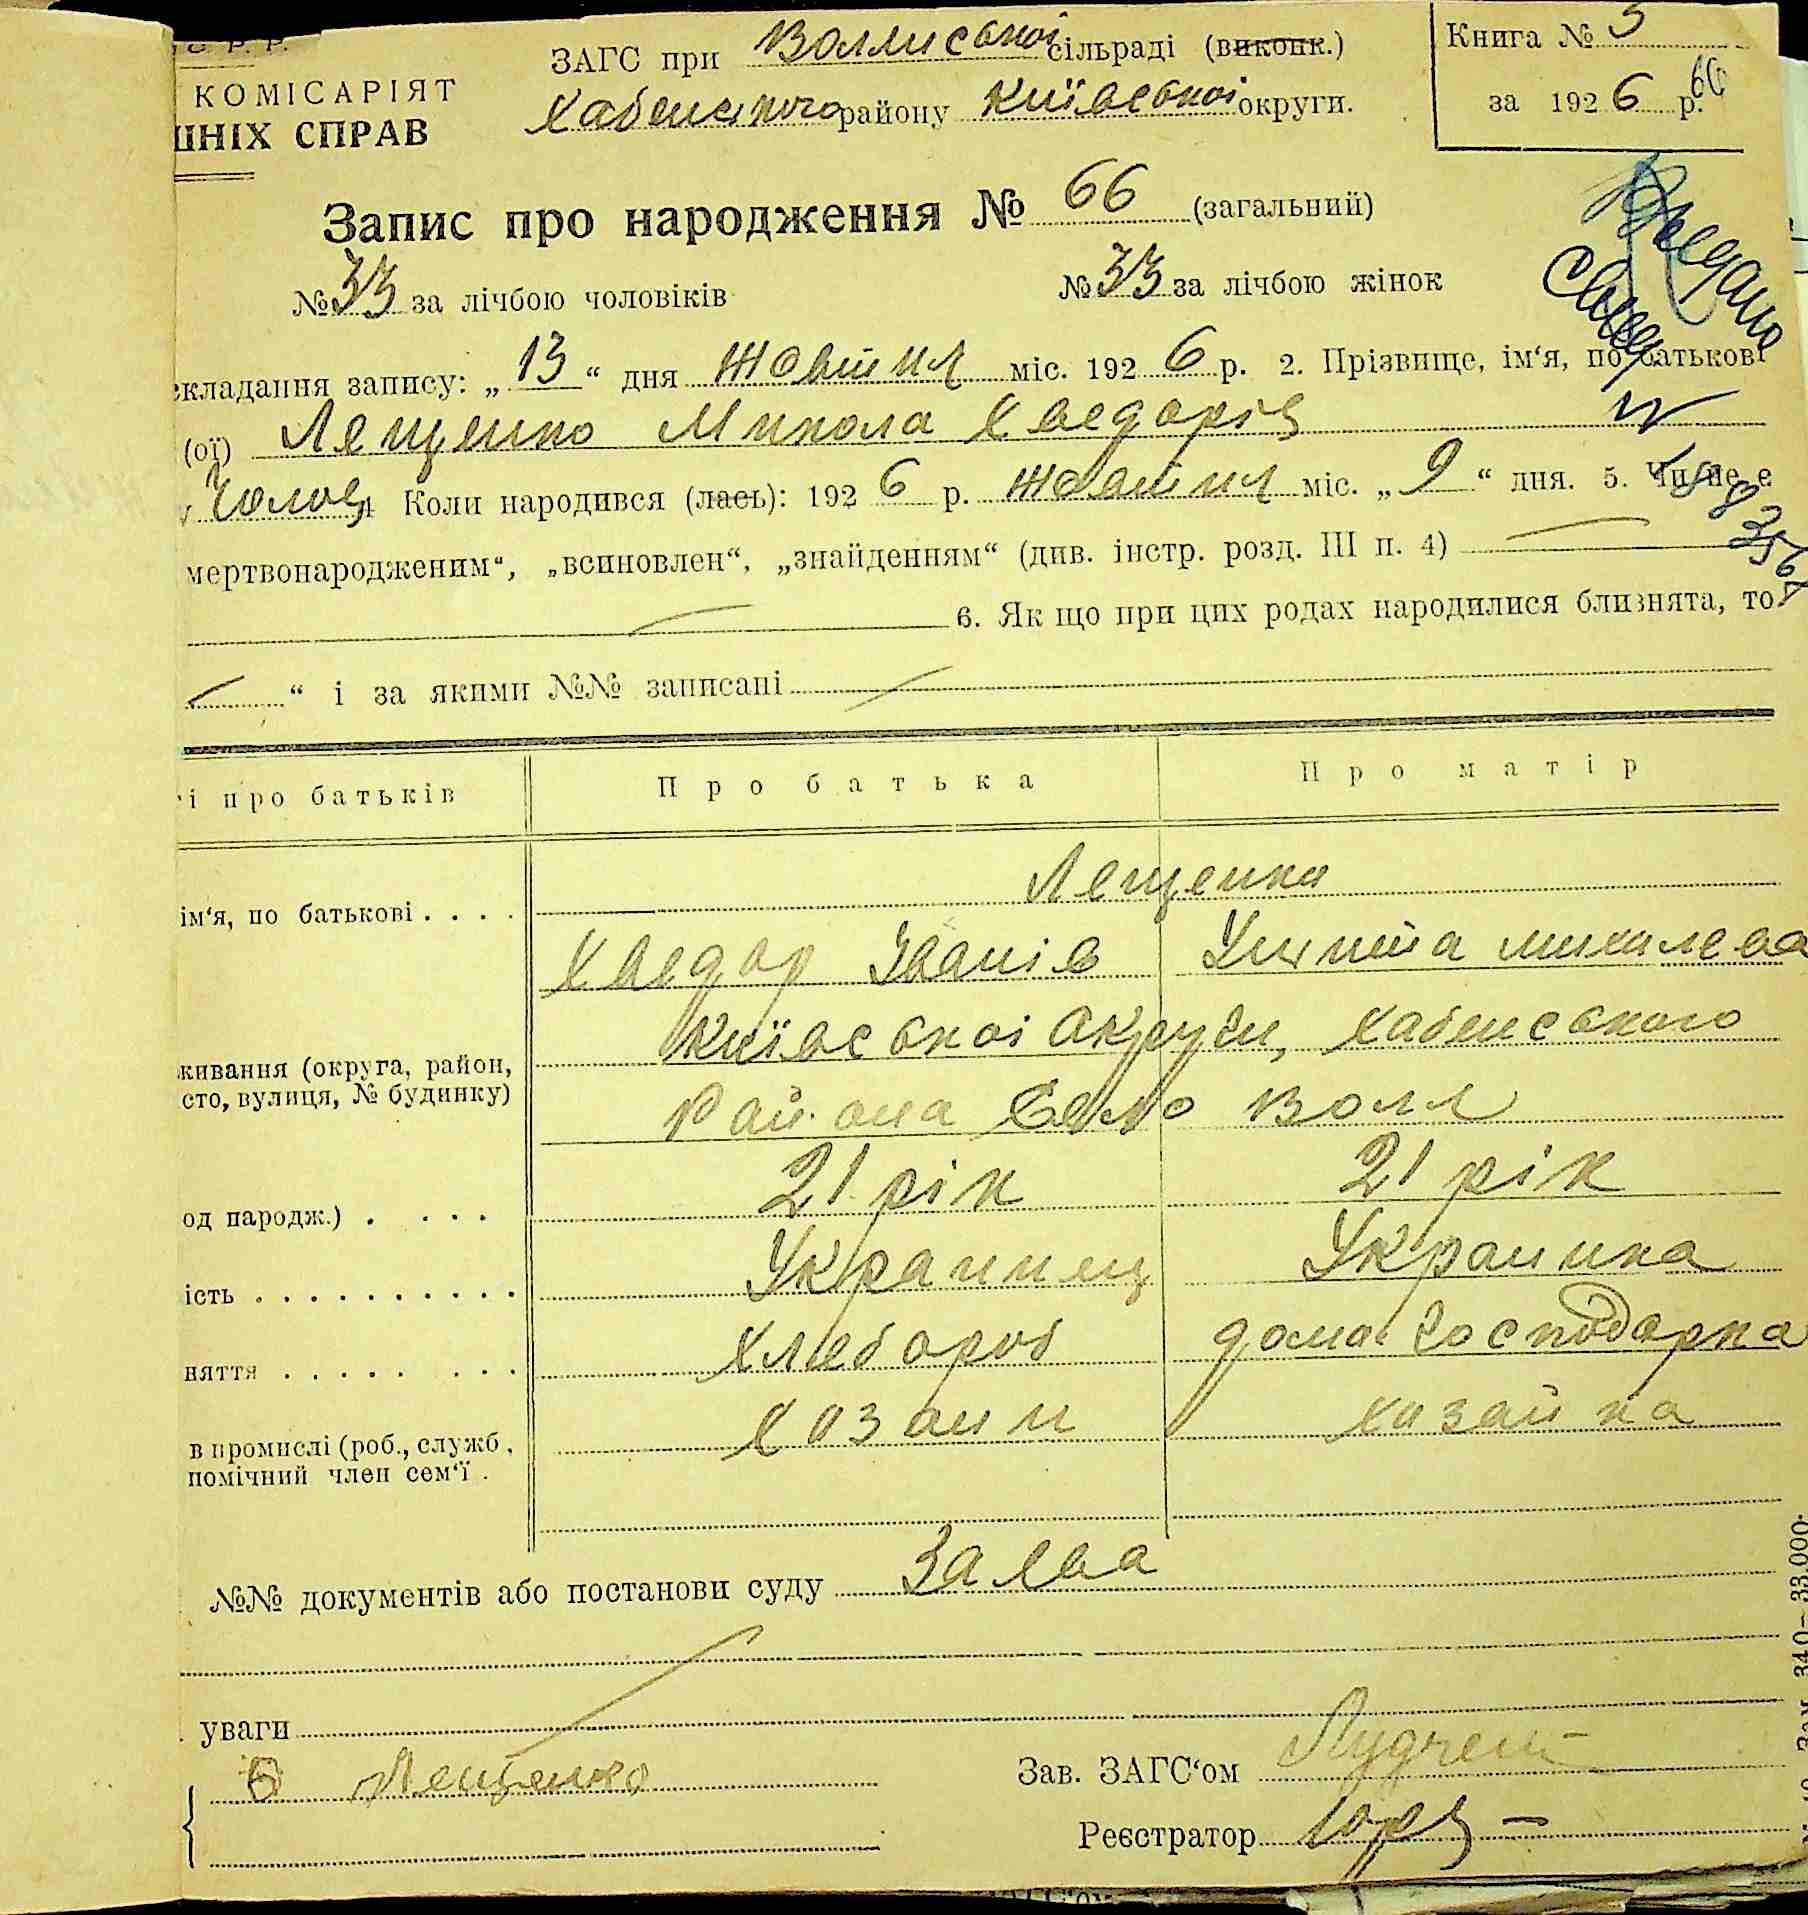 КОМІСАРІЯТ
ШНІХ СПРАВ
ЗАГС при сільраді (виконк.)
Хабенського району Київської округи.
Книга № 3
за 1926 р.
60
Запис про народження № 66 (загальний)
№ 33 за лічбою чоловіків
№ 33 за лічбою жінок
складання запису: „13“ дня Жовтня міс. 1926 р. 2. Прізвище, ім‘я, по батькові
(ої) Лещенко Микола Хведорів
Чолов. 4 Коли народився (лась): 1926 р. Жовтня міс. „9“ дня. 5. Чи не є
мертвонародженим“, „всиновлен“, „знайденням“ (див. інстр. розд. III п. 4)
6. Як що при цих родах народилися близнята, то
“ і за якими №№ записані
і про батьків
Про батька
Про матір
Лещенки
ім‘я, по батькові . . . .
Хведор Іванів
Микалева
живання (округа, район,
сто, вулиця, № будинку)
Київської Округи, Хабенського
Района Село
од народж.) . . . .
21 рік
21 рік
ість . . . . . . . . . .
Украинец
Украинка
няття . . . . . . . .
Хлебороб
дома господарка
в промислі (роб., служб.,
помічний член сем‘ї .
хазаин
хазайка
№№ документів або постанови суду
Заява
уваги
Лещенко
Зав. ЗАГС‘ом
Реєстратор
340—33.000.